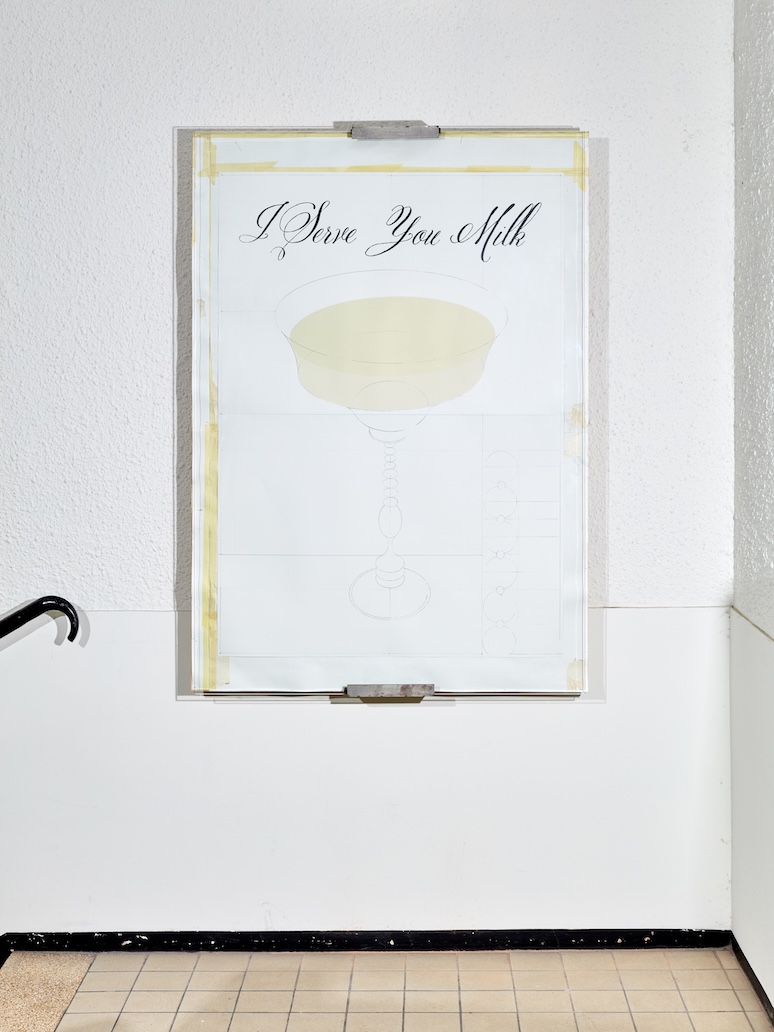 I Serve You Milk